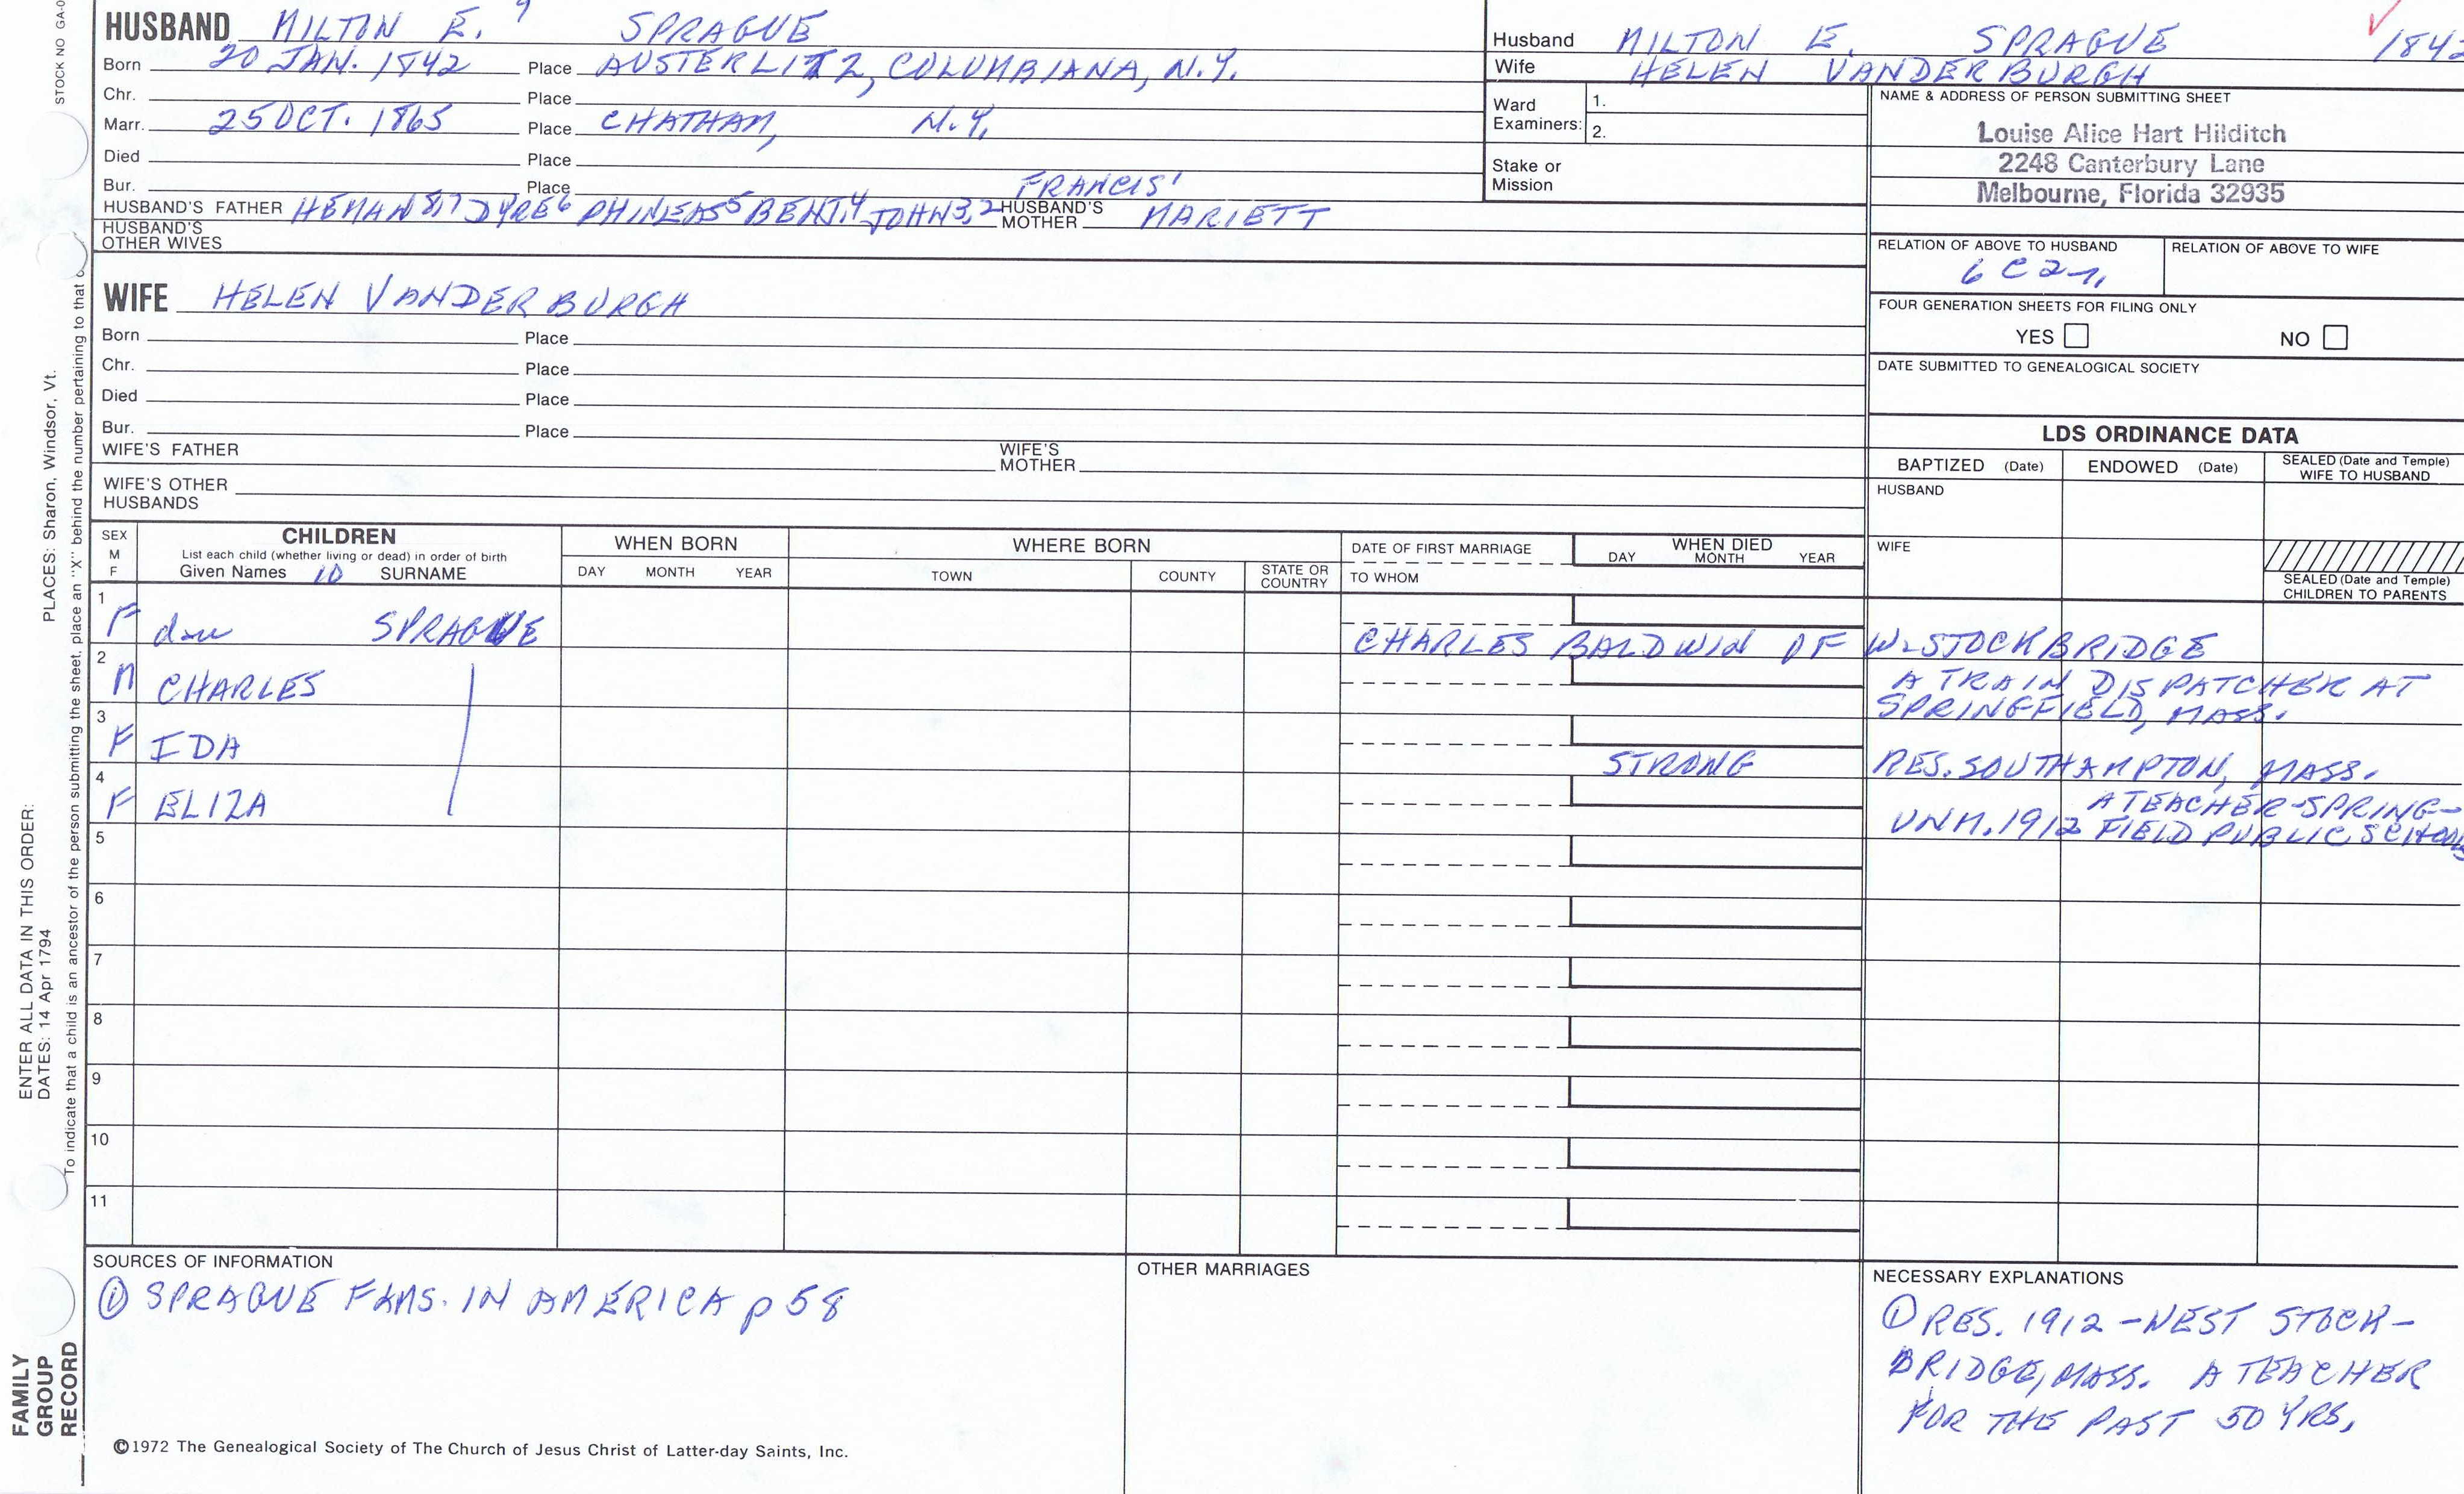 STOCK NO GA-0
HUSBAND MILTON E. 9 SPRAGUE
Born 20 JAN. 1842 Place AUSTERLITZ, COLUMBIANA, N.Y.
Chr. Place
Marr. 25 OCT. 1865 Place CHATHAM, N.Y.
Died Place
Bur. Place
HUSBAND'S FATHER HEMAN 8,7 DYRE6 PHINEAS5 BENJ.4 JOHN3,2 FRANCIS1 HUSBAND'S MOTHER MARIETT
HUSBAND'S OTHER WIVES
WIFE HELEN VANDER BURGH
Born Place
Chr. Place
Died Place
Bur. Place
WIFE'S FATHER WIFE'S MOTHER
WIFE'S OTHER HUSBANDS
Husband MILTON E. SPRAGUE 1842
Wife HELEN VANDER BURGH
Ward Examiners: 1.
2.
Stake or Mission
NAME & ADDRESS OF PERSON SUBMITTING SHEET
Louise Alice Hart Hilditch
2248 Canterbury Lane
Melbourne, Florida 32935
RELATION OF ABOVE TO HUSBAND RELATION OF ABOVE TO WIFE
6 C 2 r,
FOUR GENERATION SHEETS FOR FILING ONLY
YES NO
DATE SUBMITTED TO GENEALOGICAL SOCIETY
LDS ORDINANCE DATA
BAPTIZED (Date) ENDOWED (Date) SEALED (Date and Temple) WIFE TO HUSBAND
HUSBAND
WIFE
SEALED (Date and Temple) CHILDREN TO PARENTS
SEX M F
CHILDREN
List each child (whether living or dead) in order of birth
Given Names 10 SURNAME
WHEN BORN
DAY MONTH YEAR
WHERE BORN
TOWN COUNTY STATE OR COUNTRY
DATE OF FIRST MARRIAGE
TO WHOM
WHEN DIED
DAY MONTH YEAR
1 F dau SPRAGUE CHARLES BALDWIN OF W. STOCKBRIDGE
2 M CHARLES A TRAIN DISPATCHER AT
SPRINGFIELD, MASS.
3 F IDA STRONG RES. SOUTHAMPTON, MASS.
4 F ELIZA A TEACHER-SPRING-
UNM. 1912 FIELD PUBLIC SCHOOLS
5
6
7
8
9
10
11
SOURCES OF INFORMATION
① SPRAGUE FAMS. IN AMERICA p 58
OTHER MARRIAGES
NECESSARY EXPLANATIONS
① RES. 1912 - WEST STOCK-
BRIDGE, MASS. A TEACHER
FOR THE PAST 50 YRS.
©1972 The Genealogical Society of The Church of Jesus Christ of Latter-day Saints, Inc.
PLACES: Sharon, Windsor, Vt.
To indicate that a child is an ancestor of the person submitting the sheet, place an "X" behind the number pertaining to that
ENTER ALL DATA IN THIS ORDER:
DATES: 14 Apr 1794
FAMILY
GROUP
RECORD